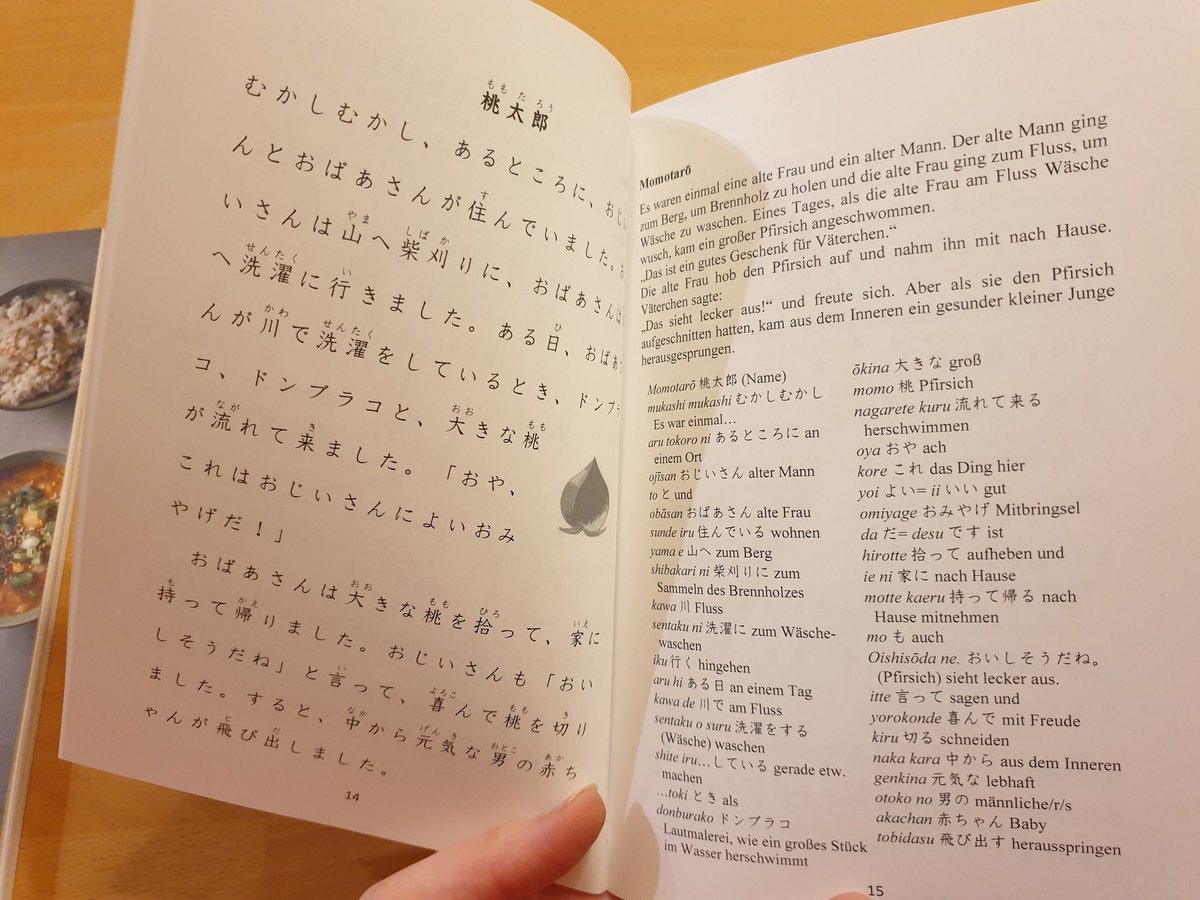 桃太郎
むかしむかし、あるところに、おじい
んとおばあさんが住んでいました。
いさんは山へ柴刈りに、おばあさんは
へ洗濯に行きました。ある日、おばあ
んが川で洗濯をしているとき、ドンブラ
コ、ドンブラコと、大きな桃
が流れて来ました。「おや、
これはおじいさんによいおみ
やげだ！」
おばあさんは大きな桃を拾って、家に
持って帰りました。おじいさんも「おい
しそうだね」と言って、喜んで桃を切り
ました。すると、中から元気な男の赤ち
ゃんが飛び出しました。
14
Momotarō
Es waren einmal eine alte Frau und ein alter Mann. Der alte Mann ging
zum Berg, um Brennholz zu holen und die alte Frau ging zum Fluss, um
Wäsche zu waschen. Eines Tages, als die alte Frau am Fluss Wäsche
wusch, kam ein großer Pfirsich angeschwommen.
„Das ist ein gutes Geschenk für Väterchen.“
Die alte Frau hob den Pfirsich auf und nahm ihn mit nach Hause.
Väterchen sagte:
„Das sieht lecker aus!“ und freute sich. Aber als sie den Pfirsich
aufgeschnitten hatten, kam aus dem Inneren ein gesunder kleiner Junge
herausgesprungen.
Momotarō 桃太郎 (Name)
mukashi mukashi むかしむかし
Es war einmal…
aru tokoro ni あるところに an
einem Ort
ojīsan おじいさん alter Mann
to と und
obāsan おばあさん alte Frau
sunde iru 住んでいる wohnen
yama e 山へ zum Berg
shibakari ni 柴刈りに zum
Sammeln des Brennholzes
kawa 川 Fluss
sentaku ni 洗濯に zum Wäsche-
waschen
iku 行く hingehen
aru hi ある日 an einem Tag
kawa de 川で am Fluss
sentaku o suru 洗濯をする
(Wäsche) waschen
shite iru…している gerade etw.
machen
…toki とき als
donburako ドンブラコ
Lautmalerei, wie ein großes Stück
im Wasser herschwimmt
ōkina 大きな groß
momo 桃 Pfirsich
nagarete kuru 流れて来る
herschwimmen
oya おや ach
kore これ das Ding hier
yoi よい= ii いい gut
omiyage おみやげ Mitbringsel
da だ= desu です ist
hirotte 拾って aufheben und
ie ni 家に nach Hause
motte kaeru 持って帰る nach
Hause mitnehmen
mo も auch
Oishisōda ne. おいしそうだね。
(Pfirsich) sieht lecker aus.
itte 言って sagen und
yorokonde 喜んで mit Freude
kiru 切る schneiden
naka kara 中から aus dem Inneren
genkina 元気な lebhaft
otoko no 男の männliche/r/s
akachan 赤ちゃん Baby
tobidasu 飛び出す herausspringen
15